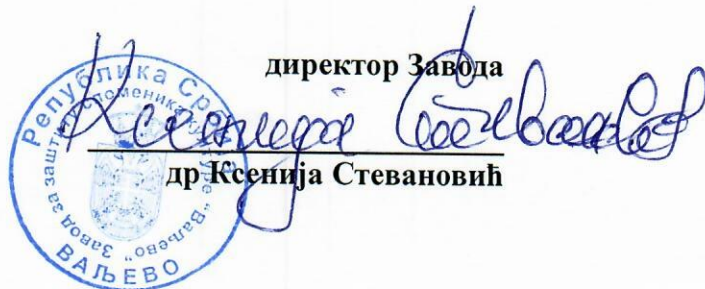 директор Завода
Ксенија Стевановић
др Ксенија Стевановић
Република Ср
Завод за заштиту споменика културе "Ваљево"
ВАЉЕВО